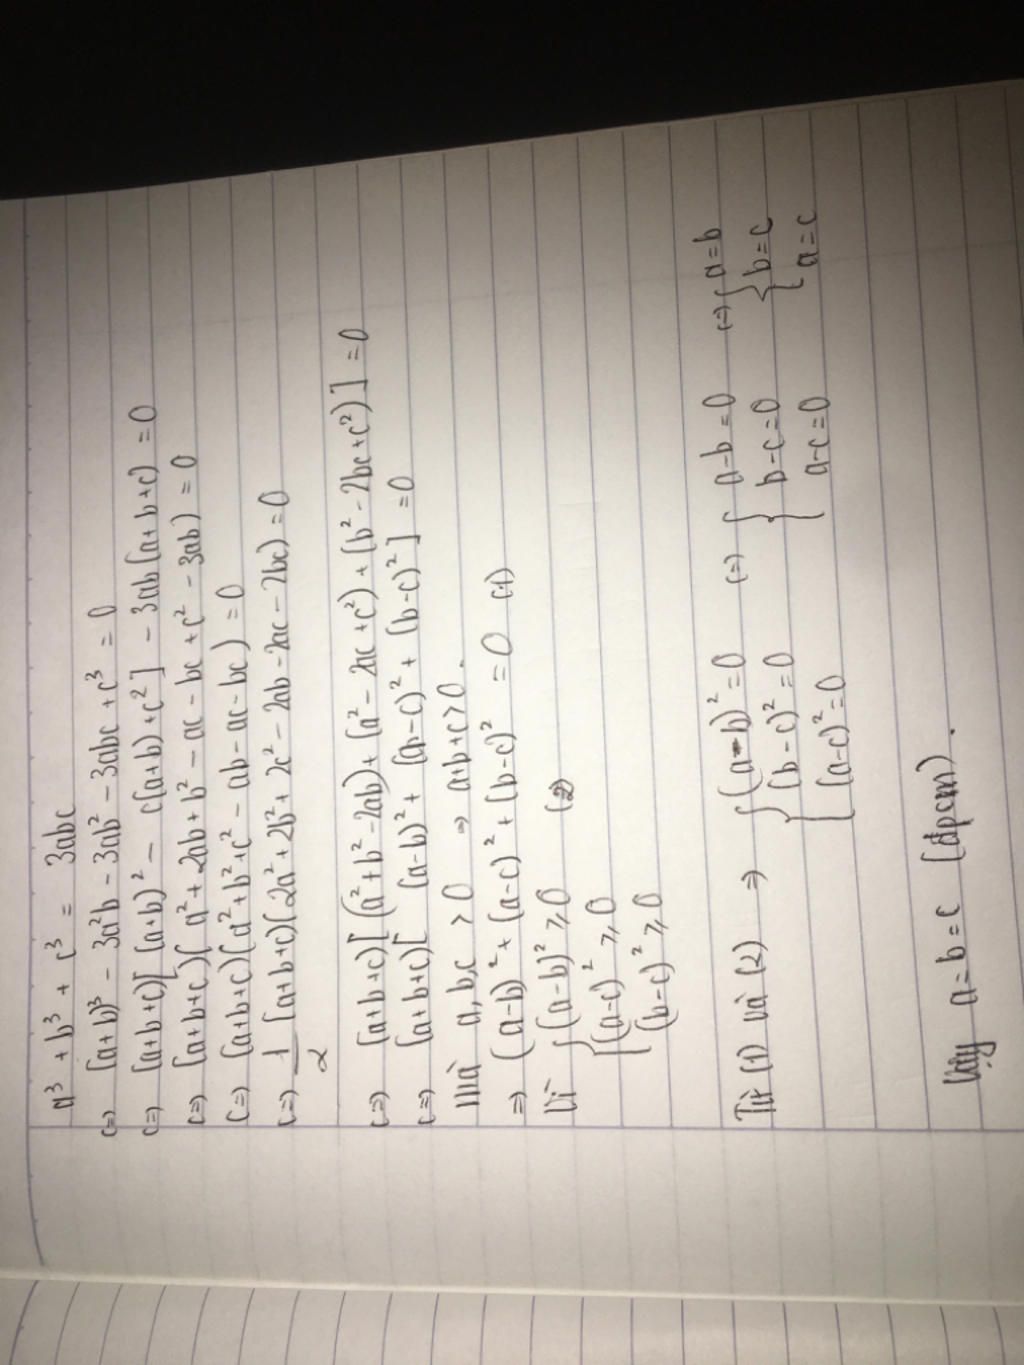 a³ + b³ + c³ = 3abc
(=) (a+b)³ - 3a²b - 3ab² - 3abc + c³ = 0
(=) (a+b+c)[(a+b)² - c(a+b) + c²] - 3ab(a+b+c) = 0
(=) (a+b+c)(a² + 2ab + b² - ac - bc + c² - 3ab) = 0
(=) (a+b+c)(a² + b² + c² - ab - ac - bc) = 0
(=) 1/2 (a+b+c)(2a² + 2b² + 2c² - 2ab - 2ac - 2bc) = 0
(=) (a+b+c)[(a² + b² - 2ab) + (a² - 2ac + c²) + (b² - 2bc + c²)] = 0
(=) (a+b+c)[(a-b)² + (a-c)² + (b-c)²] = 0
Mà a, b, c > 0 => a+b+c > 0.
=> (a-b)² + (a-c)² + (b-c)² = 0 (1)
Vì { (a-b)² ≥ 0 (2)
(a-c)² ≥ 0
(b-c)² ≥ 0
Từ (1) và (2) => { (a-b)² = 0 (=) { a-b = 0 (=) { a = b
(b-c)² = 0 b-c = 0 b = c
(a-c)² = 0 a-c = 0 a = c
Vậy a = b = c (đpcm).